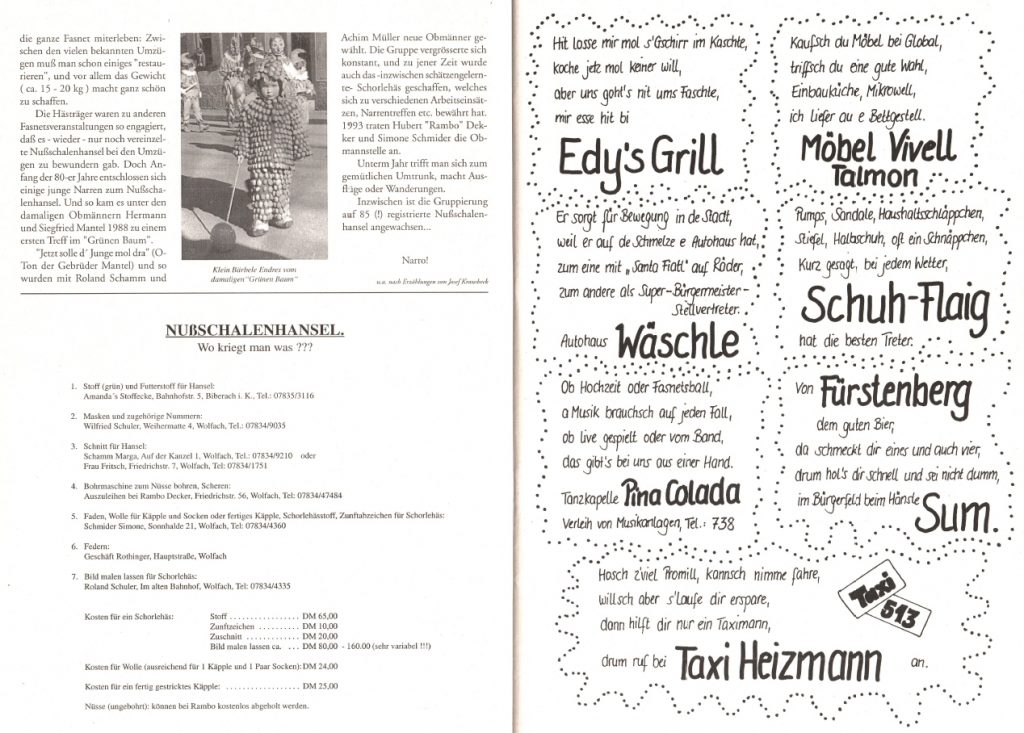 die ganze Fasnet miterleben: Zwi-
schen den vielen bekannten Umzü-
gen muß man schon einiges "restau-
rieren", und vor allem das Gewicht
( ca. 15 - 20 kg ) macht ganz schön
zu schaffen.
Die Hästräger waren zu anderen
Fasnetsveranstaltungen so engagiert,
daß es - wieder - nur noch vereinzel-
te Nußschalenhansel bei den Umzü-
gen zu bewundern gab. Doch An-
fang der 80-er Jahre entschlossen sich
einige junge Narren zum Nußscha-
lenhansel. Und so kam es unter den
damaligen Obmännern Hermann
und Siegfried Mantel 1988 zu einem
ersten Treff im "Grünen Baum".
"Jetzt solle d´ Junge mol dra" (O-
Ton der Gebrüder Mantel) und so
wurden mit Roland Schamm und
Klein Bärbele Endres vom
damaligen "Grünen Baum"
Achim Müller neue Obmänner ge-
wählt. Die Gruppe vergrösserte sich
konstant, und zu jener Zeit wurde
auch das -inzwischen schätzengelern-
te- Schorlehäs geschaffen, welches
sich zu verschiedenen Arbeitseinsät-
zen, Narrentreffen etc. bewährt hat.
1993 traten Hubert "Rambo" Dek-
ker und Simone Schmider die Ob-
mannstelle an.
Unterm Jahr trifft man sich zum
gemütlichen Umtrunk, macht Aus-
flüge oder Wanderungen.
Inzwischen ist die Gruppierung
auf 85 (!) registrierte Nußschalen-
hansel angewachsen...
Narro!
u.a. nach Erzählungen von Josef Krausbeck
NUßSCHALENHANSEL.
Wo kriegt man was ???
1. Stoff (grün) und Futterstoff für Hansel:
Amanda´s Stoffecke, Bahnhofstr. 5, Biberach i. K., Tel.: 07835/3116
2. Masken und zugehörige Nummern:
Wilfried Schuler, Weihermatte 4, Wolfach, Tel.: 07834/9035
3. Schnitt für Hansel:
Schamm Marga, Auf der Kanzel 1, Wolfach, Tel.: 07834/9210 oder
Frau Fritsch, Friedrichstr. 7, Wolfach, Tel: 07834/1751
4. Bohrmaschine zum Nüsse bohren, Scheren:
Auszuleihen bei Rambo Decker, Friedrichstr. 56, Wolfach, Tel: 07834/47484
5. Faden, Wolle für Käpple und Socken oder fertiges Käpple, Schorlehässtoff, Zunftabzeichen für Schorlehäs:
Schmider Simone, Sonnhalde 21, Wolfach, Tel: 07834/4360
6. Federn:
Geschäft Rothinger, Hauptstraße, Wolfach
7. Bild malen lassen für Schorlehäs:
Roland Schuler, Im alten Bahnhof, Wolfach, Tel: 07834/4335
Kosten für ein Schorlehäs: Stoff ................. DM 65,00
Zunftzeichen .......... DM 10,00
Zuschnitt ............. DM 20,00
Bild malen lassen ca. ... DM 80,00 - 160.00 (sehr variabel !!!)
Kosten für Wolle (ausreichend für 1 Käpple und 1 Paar Socken): DM 24,00
Kosten für ein fertig gestricktes Käpple: .................. DM 25,00
Nüsse (ungebohrt): können bei Rambo kostenlos abgeholt werden.
Hit losse mir mol s'Gschirr im Kaschte,
koche jetz mol keiner will,
aber uns goht's nit ums Faschte,
mir esse hit bi
Edy's Grill
Kaufsch du Möbel bei Global,
triffsch du eine gute Wahl,
Einbauküche, Mikrowell,
ich liefer au e Bettgestell.
Möbel Vivell
Talmon
Er sorgt für Bewegung in de Stadt,
weil er auf de Schmelze e Autohaus hat,
zum eine mit „Santa Fiatl" auf Räder,
zum andere als Super-Bürgermeister-
Stellvertreter.
Autohaus Wäschle
Pumps, Sandale, Haushaltsschläppchen,
Stiefel, Halbschuh, oft ein Schnäppchen,
Kurz gesagt, bei jedem Wetter,
Schuh-Flaig
hat die besten Treter.
Ob Hochzeit oder Fasnetsball,
a Musik brauchsch auf jeden Fall,
ob live gespielt oder vom Band,
das gibt's bei uns aus einer Hand.
Tanzkapelle Pina Colada
Verleih von Musikanlagen, Tel.: 738
Von Fürstenberg
dem guten Bier,
da schmeckt dir eines und auch vier,
drum hol's dir schnell und sei nicht dumm,
im Bürgerfeld beim Hänsle
Sum.
Hosch z'viel Promill, kannsch nimme fahre,
willsch aber s'Laufe dir erspare,
dann hilft dir nur ein Taximann,
drum ruf bei Taxi Heizmann an.
Taxi
513